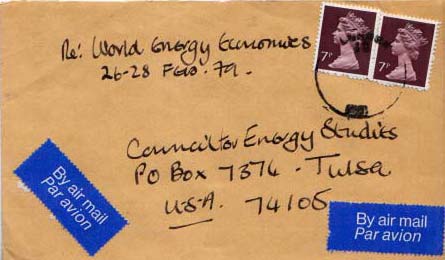 Re: World Energy Economics
26-28 Feb. 79.
7P
7P
LONDON
Council for Energy Studies
PO Box 7374 - Tulsa
USA 74105
By air mail
Par avion
By air mail
Par avion